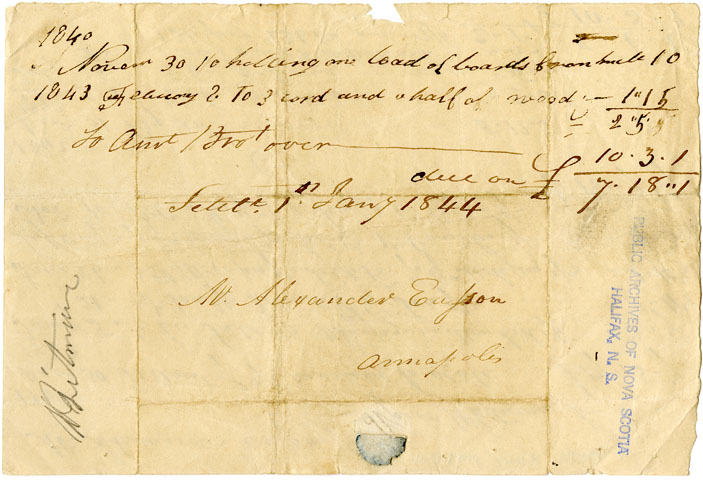 1840
Novemr 30 To holling one load of boards from mill 10
1843 February 2 To 3 cord and a half of wood :— 1"15
£ 2"5"5
To Amt Brot over
10.3.1
due on £ 7.18"1
Settld 1st Jany 1844
Mr. Alexander Easson
Annapolis
PUBLIC ARCHIVES OF NOVA SCOTIA
HALIFAX, N. S.